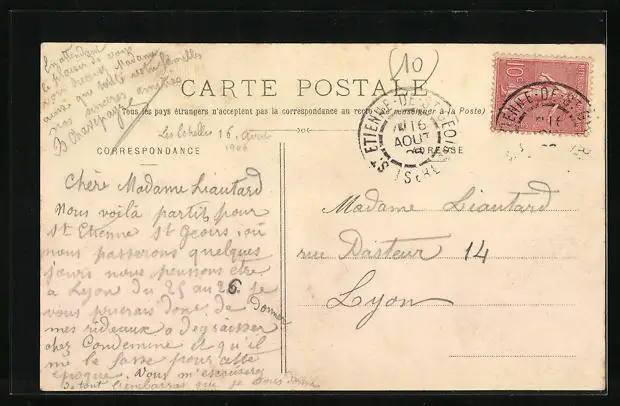 En attendant
le plaisir de vous
voir recevez Madame
ainsi que toute votre famille
nos sincères amitiés
B Chasse
(10)
CARTE POSTALE
Tous les pays étrangers n'acceptent pas la correspondance au recto (Se renseigner à la Poste)
Les Echelles 16. Août
1906
CORRESPONDANCE
ADRESSE
ST ETIENNE-DE-ST-GEOIRS
16
AOUT
ISERE
10
Chère Madame Liautard
Nous voilà partis pour
St Etienne St Geoirs où
nous passerons quelques
jours nous pensons etre
a Lyon du 25 au 26 je
vous prierais donc de donner
mes rideaux a degraisser
chez Condemine et qu'il
me le fasse pour cette
époque. Vous m'excuserez
de tout l'embarras que je vous donne
Madame Liautard
rue Pasteur 14
Lyon